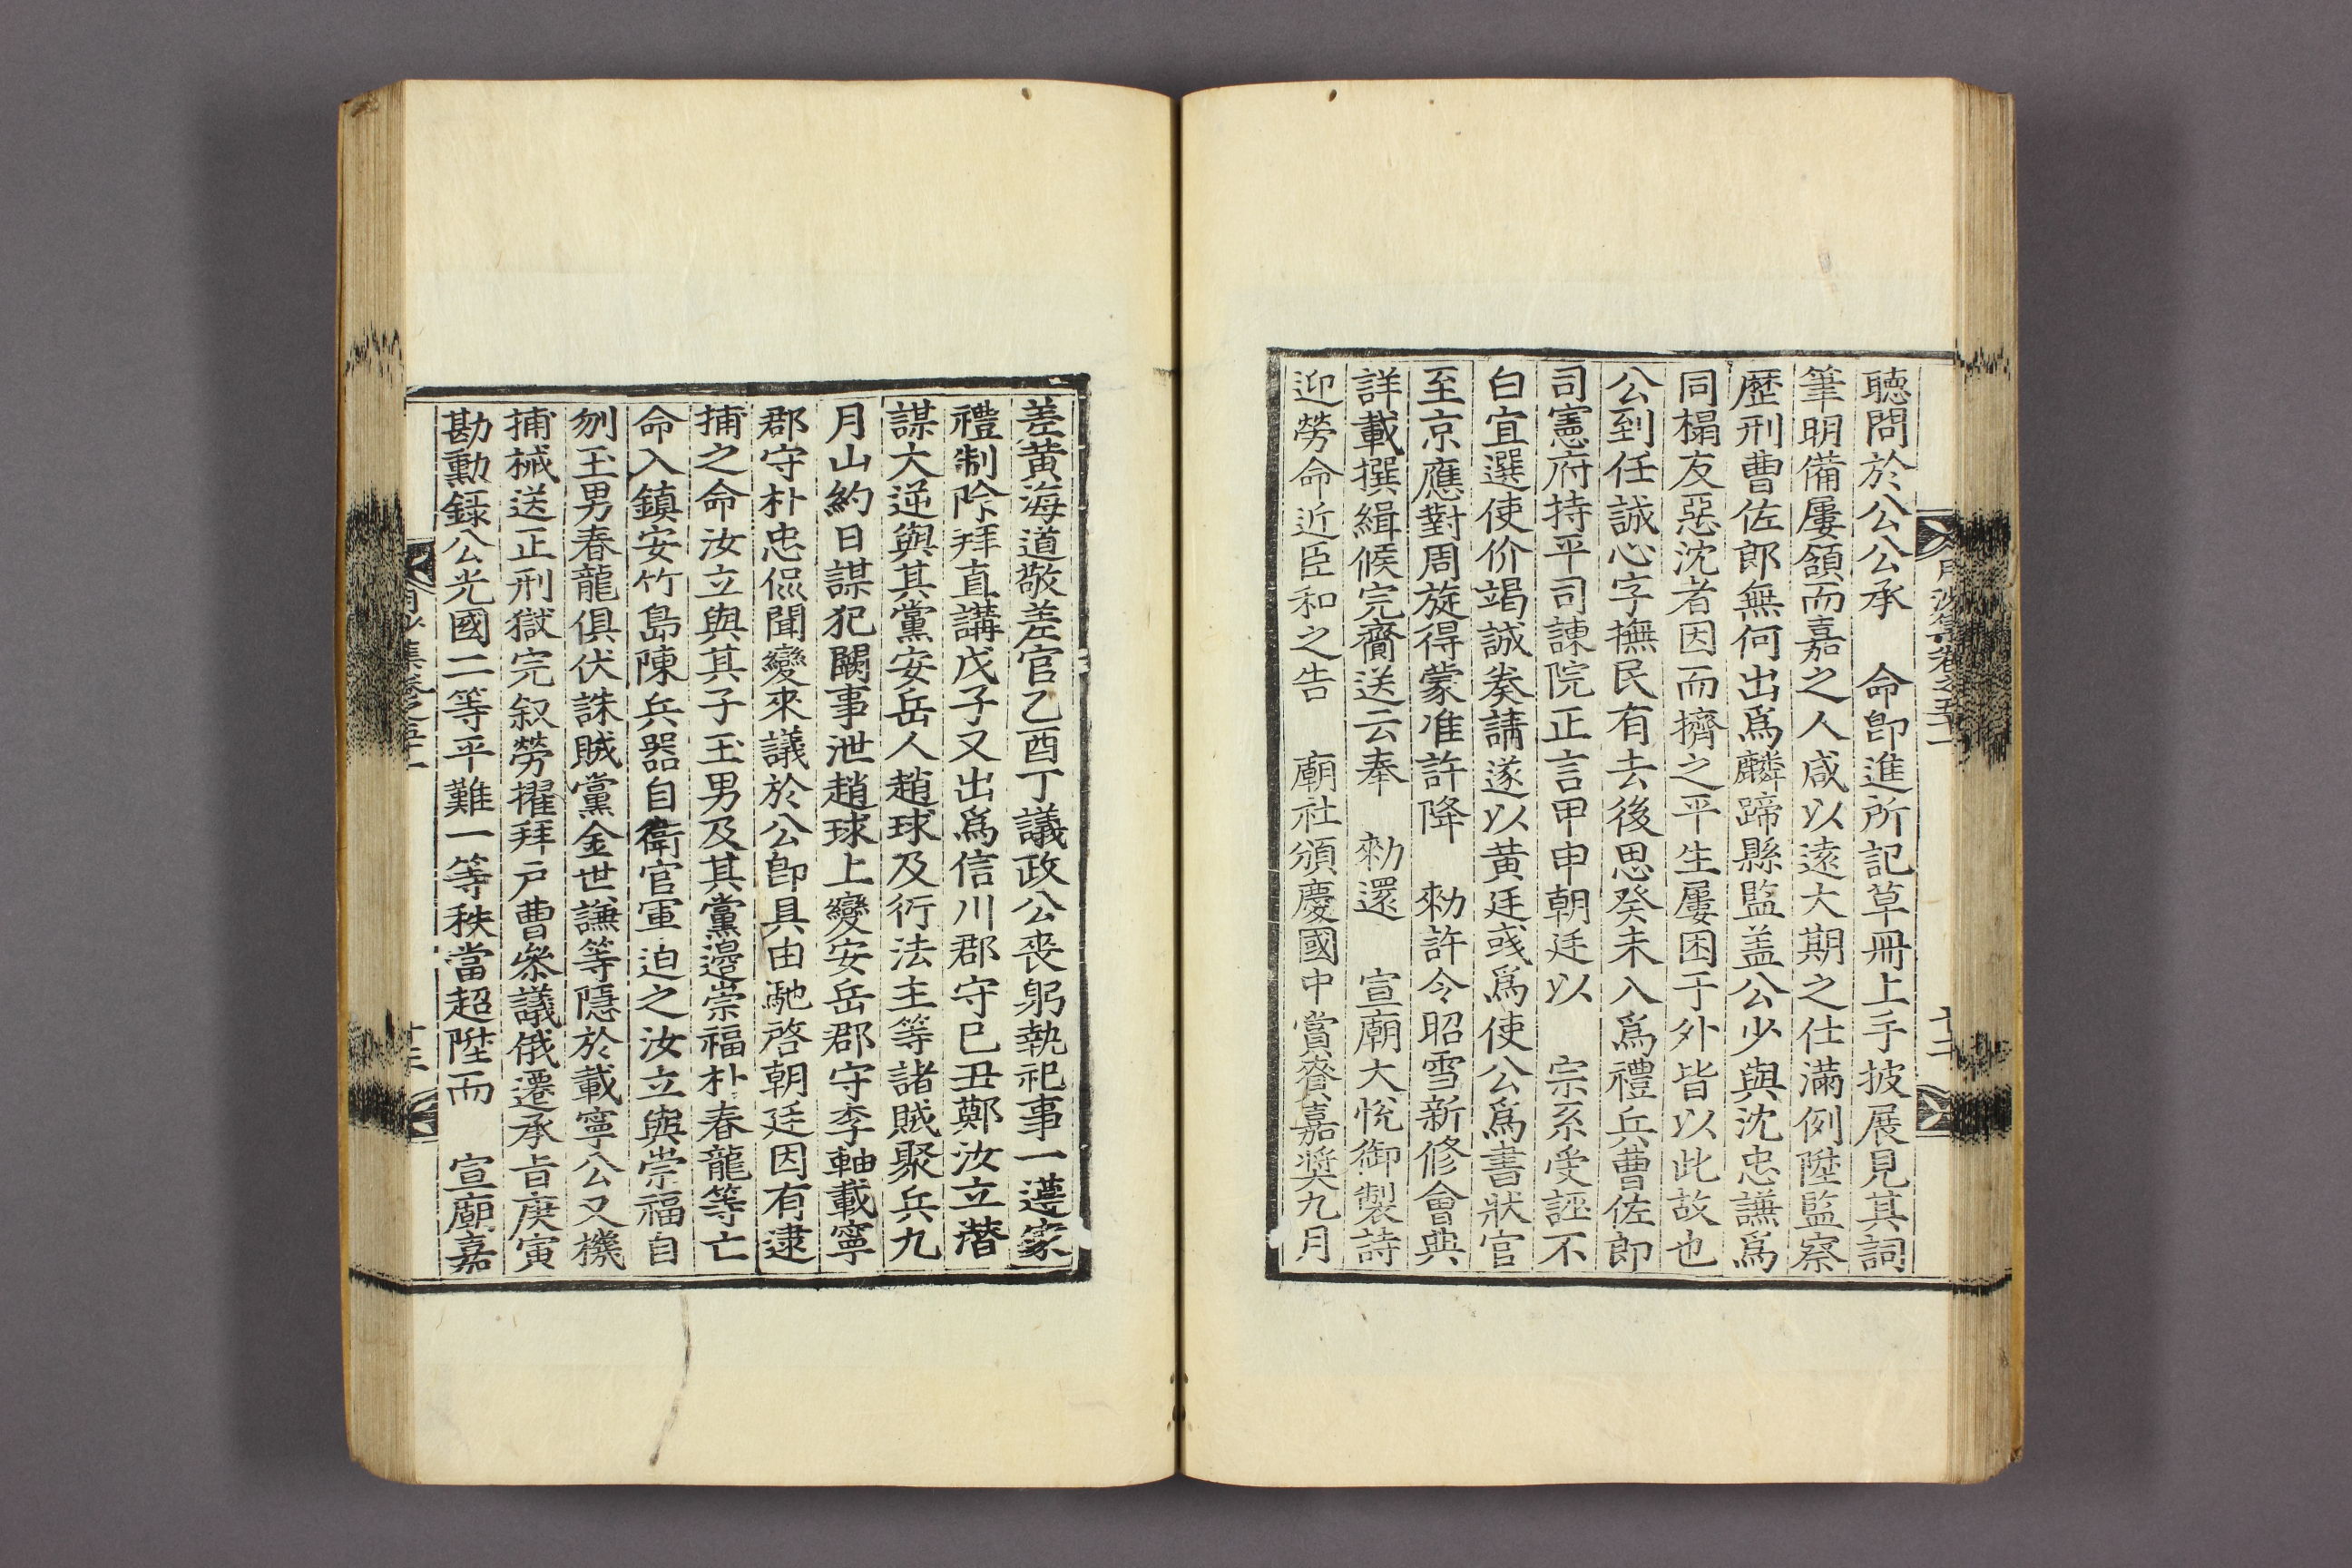 聽問於公公承　命卽進所記草冊上手披展見其詞
筆明備屢頷而嘉之人咸以遠大期之仕滿例陞監察
歷刑曹佐郎無何出爲麟蹄縣監盖公少與沈忠謙爲
同榻友惡沈者因而擠之平生屢困于外皆以此故也
公到任誠心字撫民有去後思癸未入爲禮兵曹佐郎
司憲府持平司諫院正言甲申朝廷以　宗系受誣不
白宜選使价竭誠奏請遂以黄廷彧爲使公爲書狀官
至京應對周旋得蒙准許降　勑許令昭雪新修會典
詳載撰緝候完齎送云奉　勑還　宣廟大悅御製詩
迎勞命近臣和之告　廟社頒慶國中賞賚嘉奬九月
差黄海道敬差官乙酉丁議政公喪躬執祀事一遵家
禮制除拜直講戊子又出爲信川郡守已丑鄭汝立潛
謀大逆與其黨安岳人趙球及衍法主等諸賊聚兵九
月山約日謀犯闕事泄趙球上變安岳郡守李軸載寧
郡守朴忠侃聞變來議於公卽具由馳啓朝廷因有逮
捕之命汝立與其子玉男及其黨邊崇福朴春龍等亡
命入鎮安竹島陳兵器自衛官軍迫之汝立與崇福自
刎玉男春龍俱伏誅賊黨金世謙等隱於載寧公又機
捕械送正刑獄完叙勞擢拜戶曹叅議俄遷承旨庚寅
勘勳錄公光國二等平難一等秩當超陞而　宣廟嘉
月沙集卷之五十一
十二